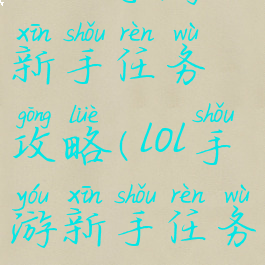 xīn shǒu rèn wù
新手任务
gōng lüè shǒu
攻略(lol手
yóu xīn shǒu rèn wù
游新手任务